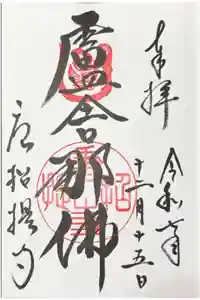 奉拝
令和
月十五日
盧舎那佛
唐招提寺